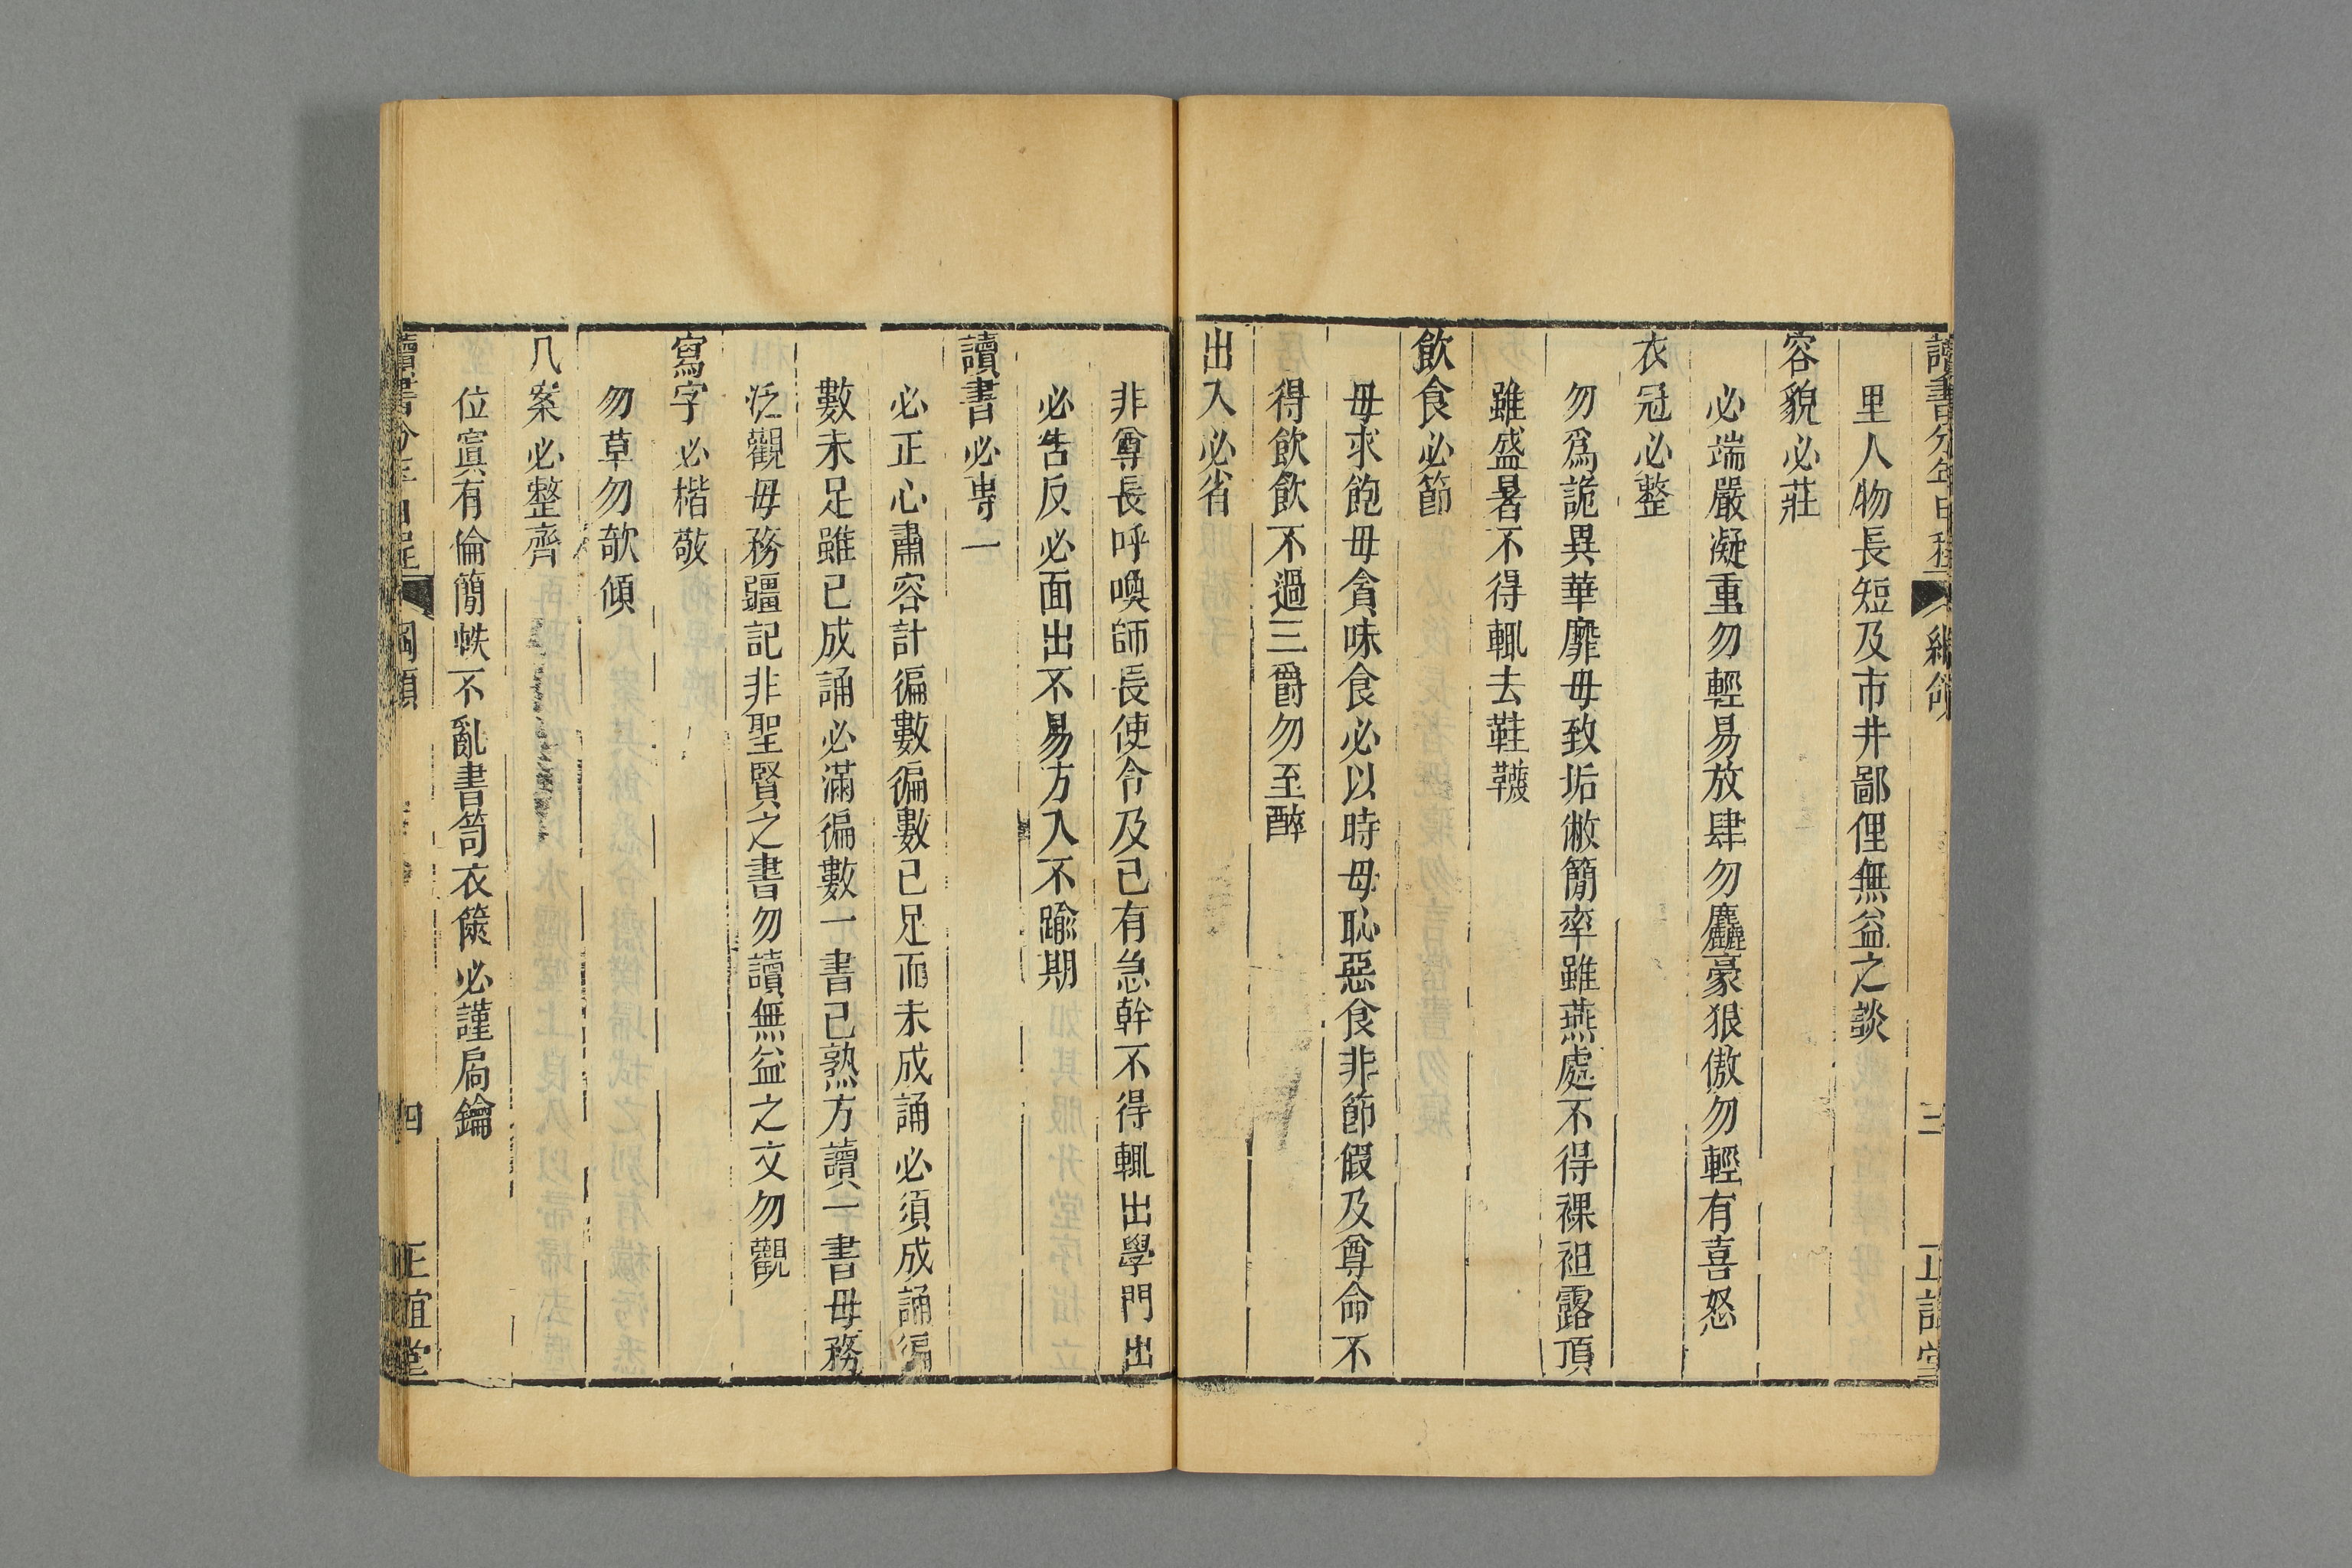 讀書分年日程
綱領
三
正誼堂
里人物長短及市井鄙俚無益之談
容貌必莊
必端嚴凝重勿輕易放肆勿麤豪狠傲勿輕有喜怒
衣冠必整
勿爲詭異華靡毋致垢敝簡率雖燕處不得裸袒露頂
雖盛暑不得輒去鞋韈
飲食必節
毋求飽毋貪味食必以時毋恥惡食非節假及尊命不
得飲飲不過三爵勿至醉
出入必省
非尊長呼喚師長使令及己有急幹不得輒出學門出
必告反必面出不易方入不踰期
讀書必專一
必正心肅容計徧數徧數已足而未成誦必須成誦徧
數未足雖已成誦必滿徧數一書已熟方讀一書毋務
泛觀毋務彊記非聖賢之書勿讀無益之文勿觀
寫字必楷敬
勿草勿欹傾
几案必整齊
位寘有倫簡帙不亂書笥衣篋必謹扃鑰
讀書分年日程
綱領
四
正誼堂